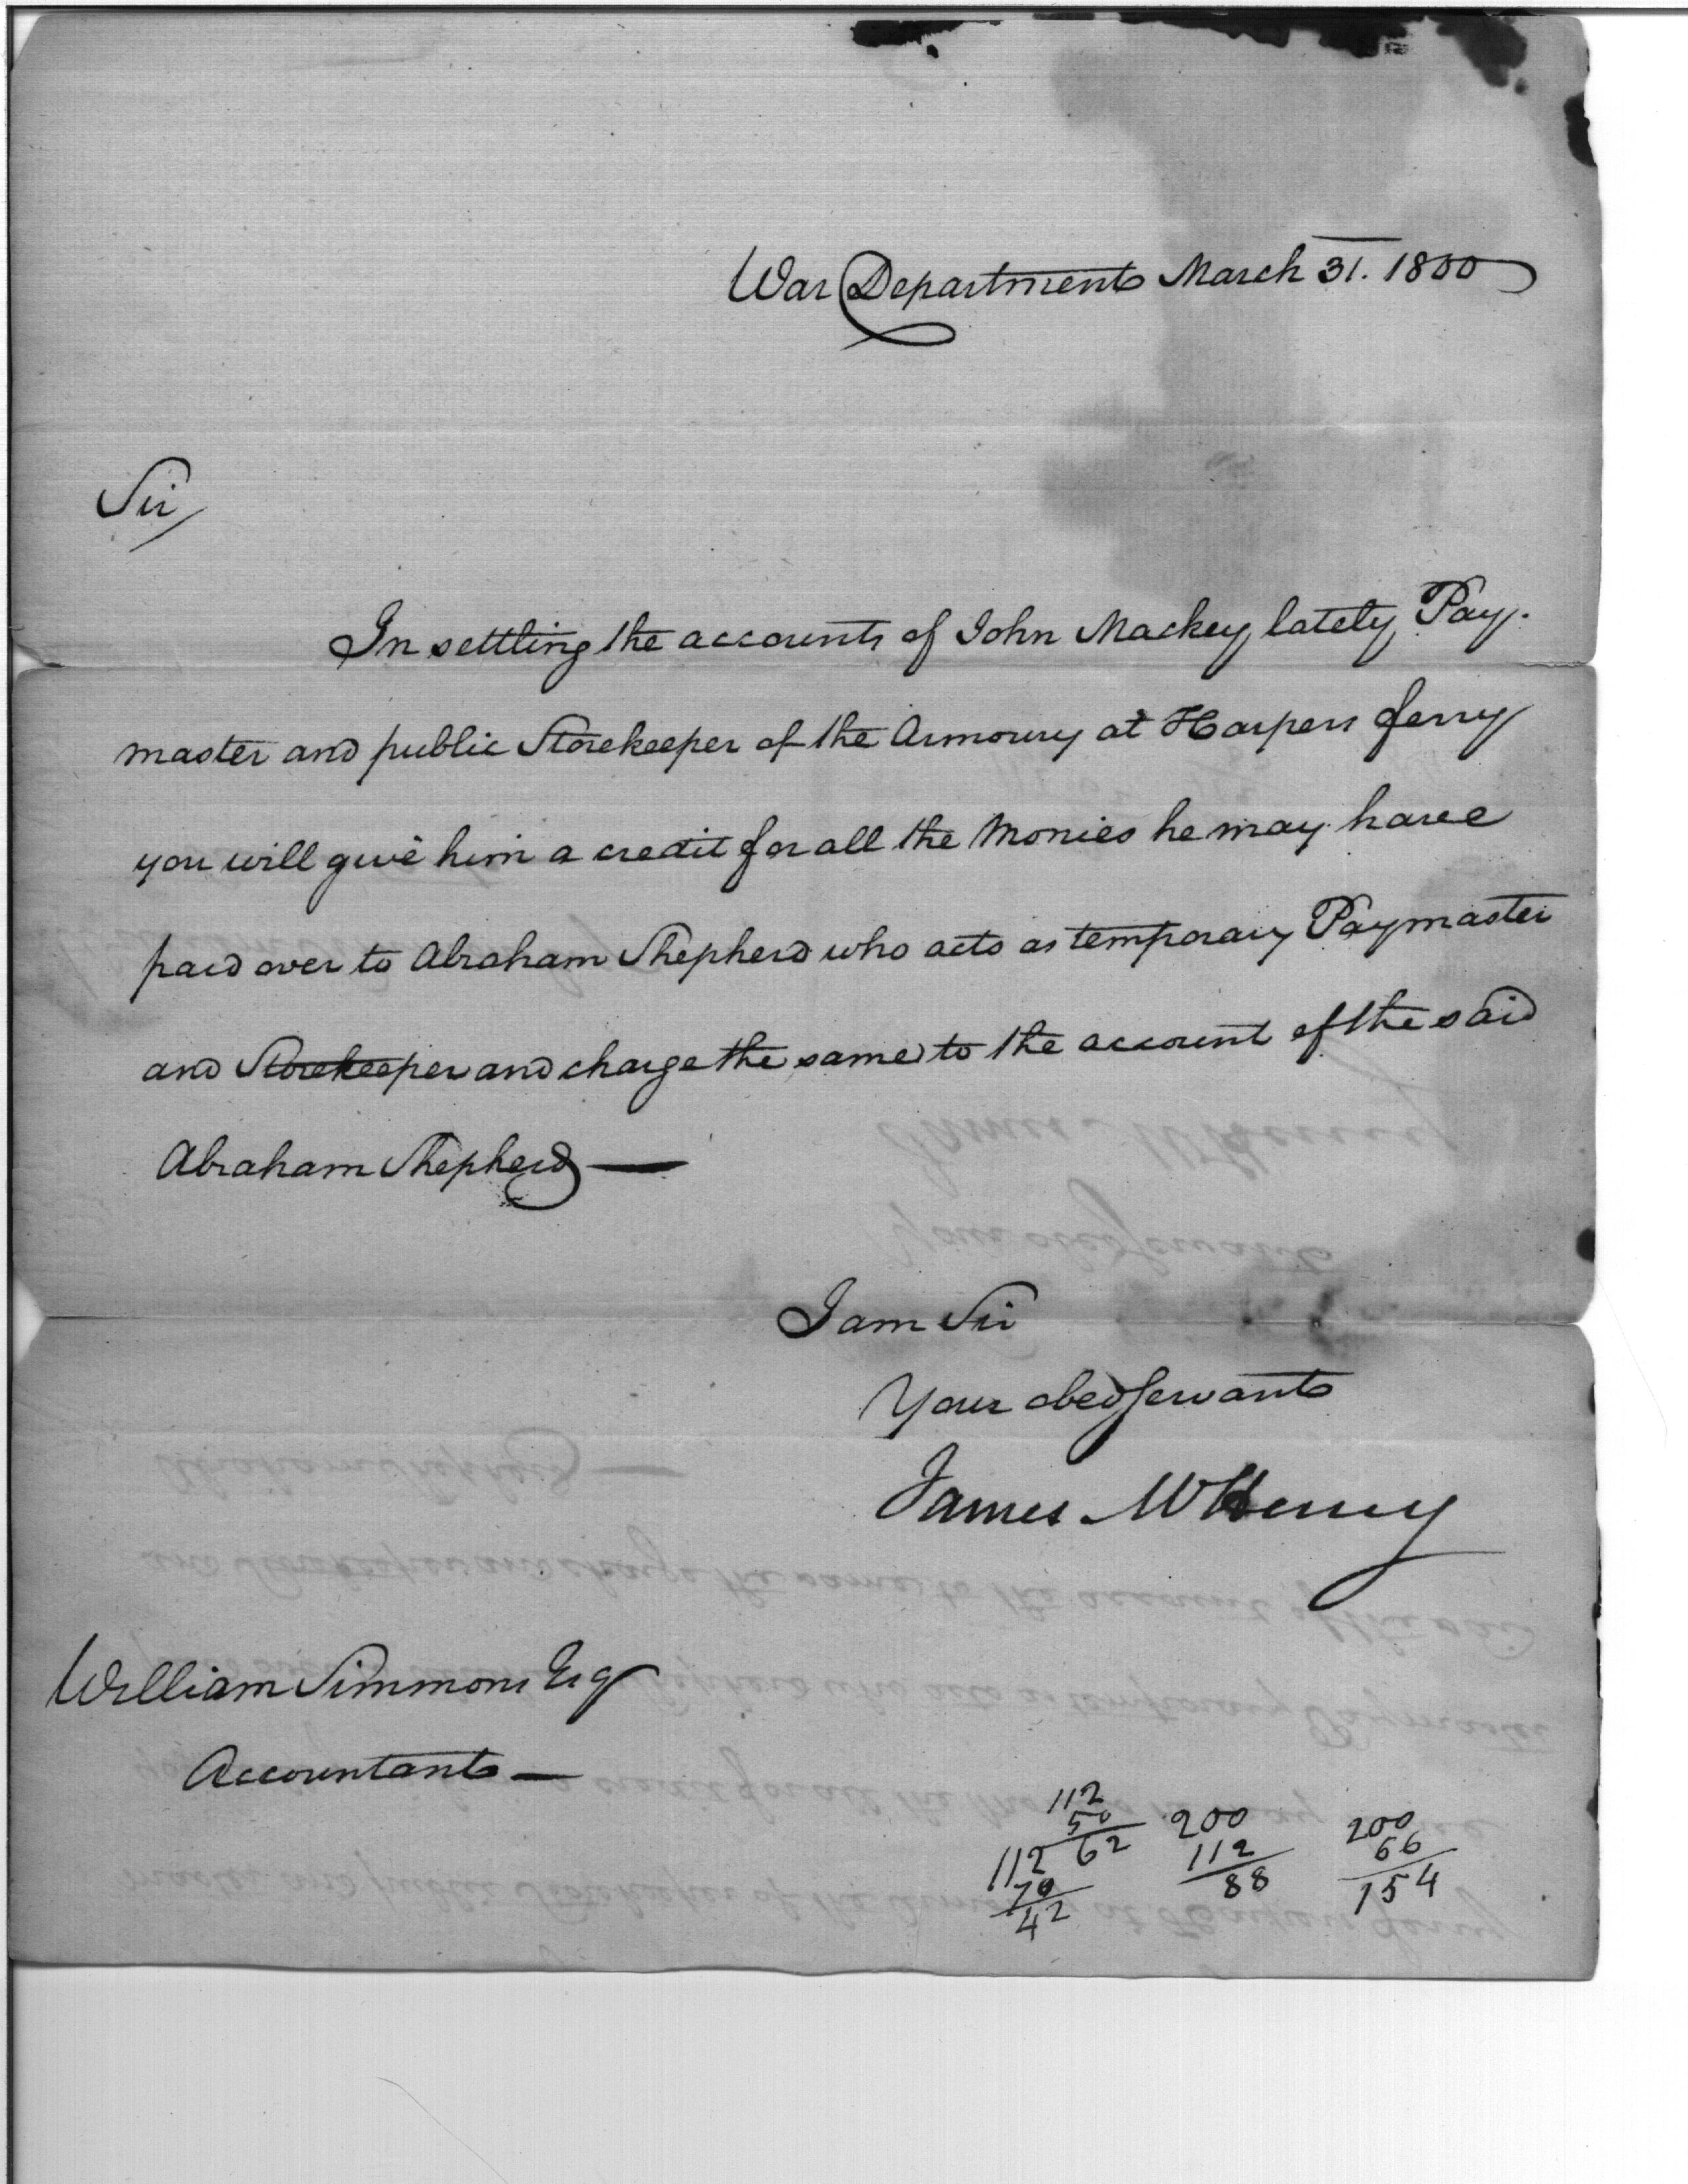 War Department March 31. 1800
Sir
In settling the accounts of John Mackey, lately Pay-
master and public Storekeeper of the Armoury at Harpers ferry
you will give him a credit for all the Monies he may have
paid over to Abraham Shepherd who acts as temporary Paymaster
and Storekeeper and charge the same to the account of the said
Abraham Shepherd —
I am Sir
Your obed servant
James McHenry
William Simmons Esq
Accountant —
112
50
62
112
70
42
200
112
88
200
66
154